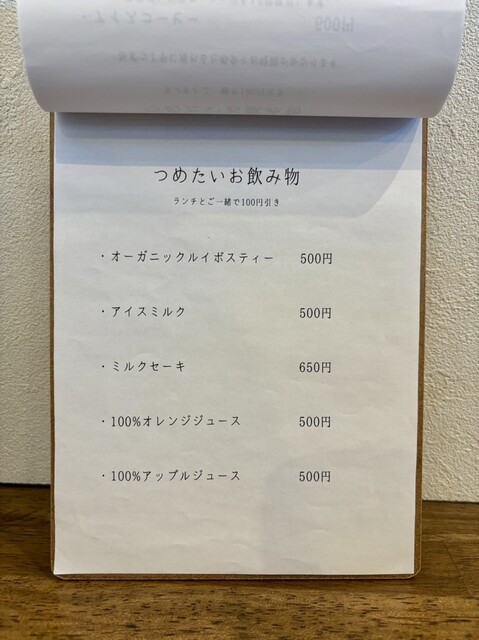 つめたいお飲み物
ランチとご一緒で100円引き
・オーガニックルイボスティー 500円
・アイスミルク 500円
・ミルクセーキ 650円
・100%オレンジジュース 500円
・100%アップルジュース 500円